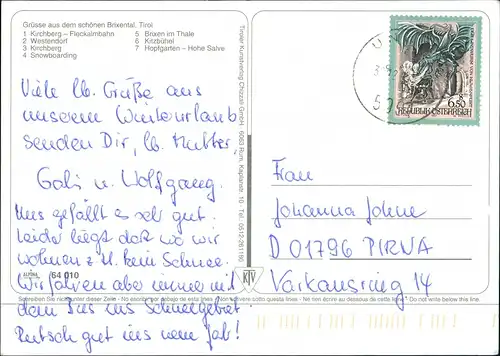 Grüsse aus dem schönen Brixental, Tirol
1 Kirchberg – Fleckalmbahn
2 Westendorf
3 Kirchberg
4 Snowboarding
5 Brixen im Thale
6 Kitzbühel
7 Hopfgarten – Hohe Salve
Viele lb. Grüße aus
unserem Winterurlaub
senden Dir, lb. Mutter,
Gabi u. Wolfgang.
Uns gefällt es sehr gut.
Leider liegt dort wo wir
wohnen z. Zt. kein Schnee.
Wir fahren aber immer mit
dem Bus ins Schneegebiet.
Rutsch gut ins neue Jahr!
ALPINA
64 010
Tiroler Kunstverlag Chizzali GmbH., 6063 Rum, Kaplanstr. 10
Tel. 0512-261186
KV
6.50
REPUBLIK ÖSTERREICH
Frau
Johanna Johne
D 01796 PIRNA
Varkausring 14
Schreiben Sie nicht unter dieser Zeile - No escribir por debajo de esta línea - Non scrivere sotto questa linea - Ne rien écrire au dessous de cette ligne - Do not write below this line